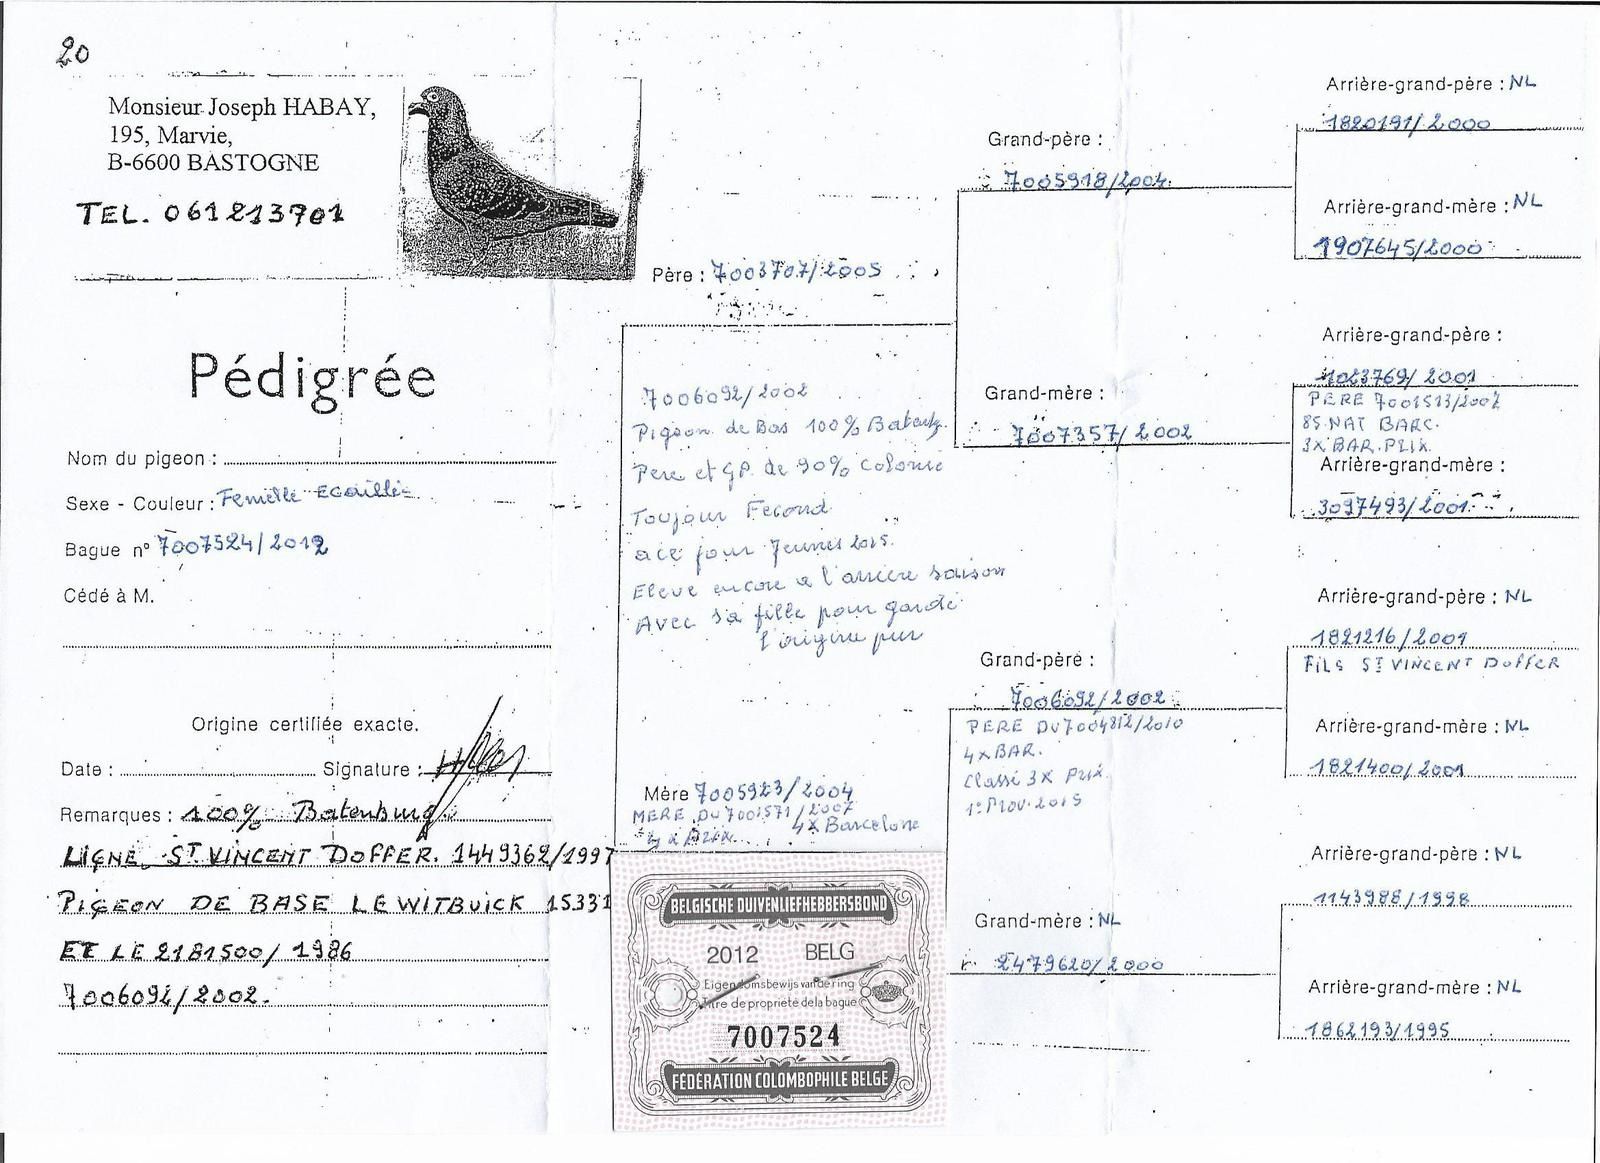 20
Monsieur Joseph HABAY,
195, Marvie,
B-6600 BASTOGNE
TEL. 061213701
Pédigrée
Nom du pigeon :
Sexe - Couleur : Femelle Ecaillé
Bague n° 7007524/2012
Cédé à M.
Origine certifiée exacte.
Date : Signature :
Remarques : 100% Batenburg
LIGNE ST VINCENT DOFFER. 1449362/1997
PIGEON DE BASE LE WITBUICK 15331
ET LE 2181500/1986
7006092/2002.
Père : 7003707/2005
7006092/2002
Pigeon de Bas 100% Batenbg.
Pere et GP. de 90% Colonie
Toujour Fecond
ace jour Jeunes 2015.
Eleve encore a l'arriere saison
Avec sa fille pour garde
l'origine pur
Mère 7005923/2004
MERE DU 7001571/2007
4x Barcelone
4 x Prix
BELGISCHE DUIVENLIEFHEBBERSBOND
2012 BELG
Eigendomsbewijs van de ring
Titre de propriété de la bague
7007524
FÉDÉRATION COLOMBOPHILE BELGE
Grand-père :
7005918/2004
Grand-mère :
7007357/2002
Grand-père :
7006092/2002
PERE DU 7004812/2010
4x BAR.
Classé 3x Prix
1° Prov. 2015
Grand-mère : NL
2479620/2000
Arrière-grand-père : NL
1820191/2000
Arrière-grand-mère : NL
1907645/2000
Arrière-grand-père :
1023769/2001
PERE 7001513/2007
85 NAT BARC.
3x BAR. PRIX.
Arrière-grand-mère :
3097493/2001
Arrière-grand-père : NL
1821216/2001
FILS ST VINCENT DOFFER
Arrière-grand-mère : NL
1821400/2001
Arrière-grand-père : NL
1143988/1998
Arrière-grand-mère : NL
1862193/1995